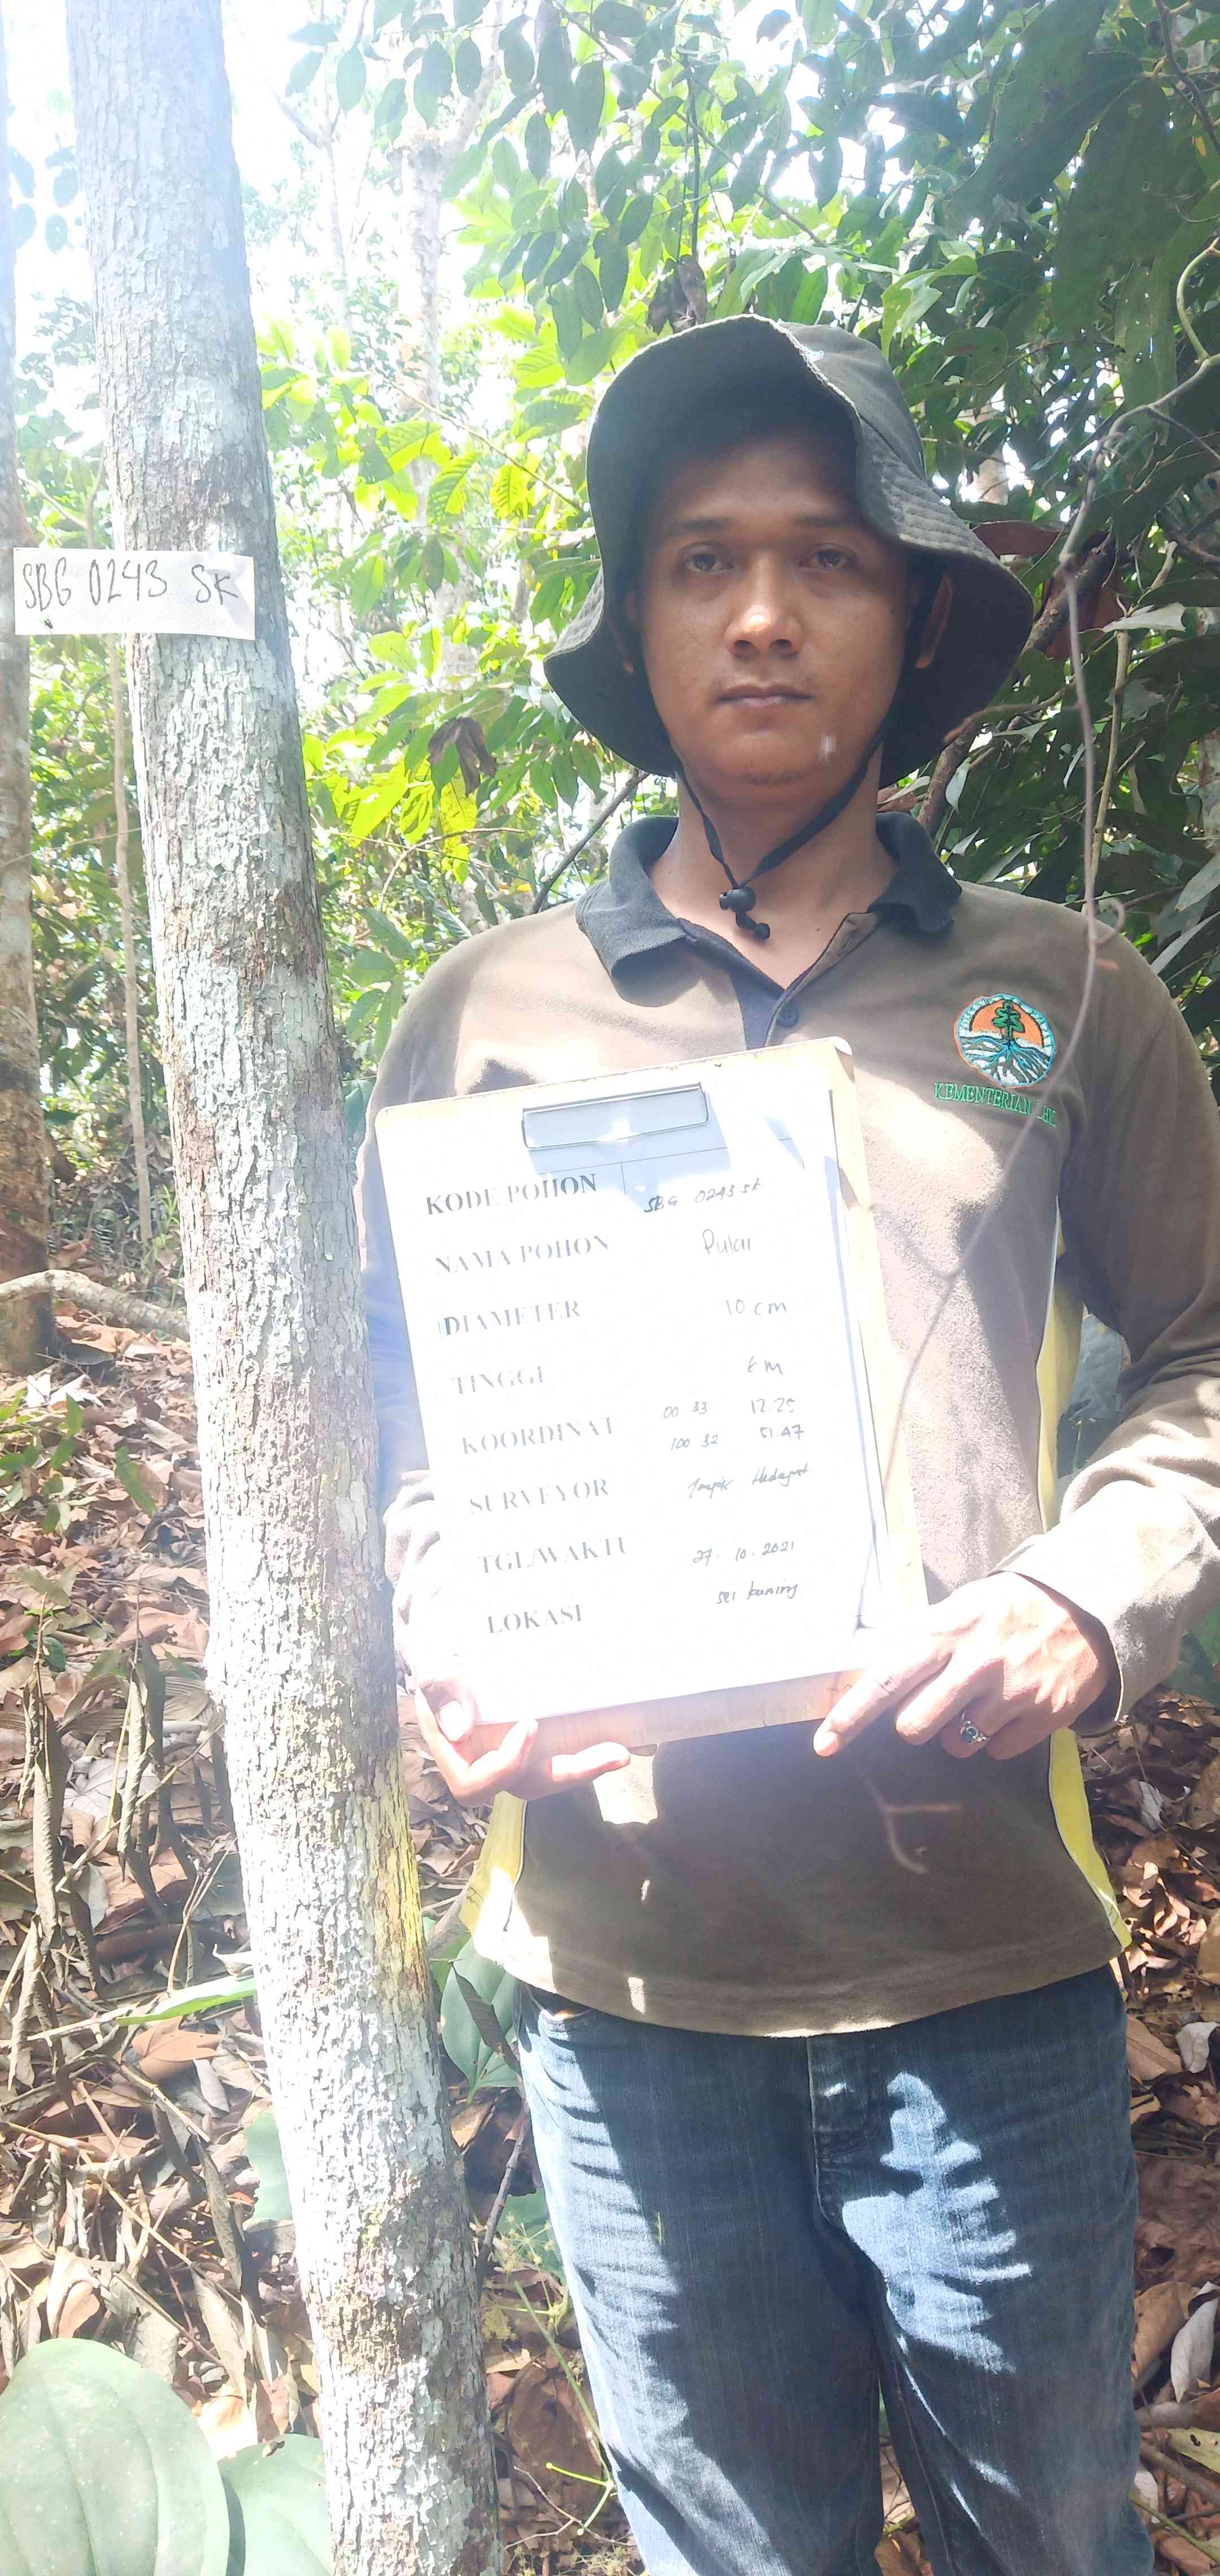 SBG 0243 SK
KEMENTERIAN LHK
KODE POHON SBG 0243 SK
NAMA POHON Pulai
DIAMETER 10 cm
TINGGI 6 m
KOORDINAT 00 33 12.25
100 32 51.47
SURVEYOR
TGL/WAKTU 27.10.2021
LOKASI sei kuning